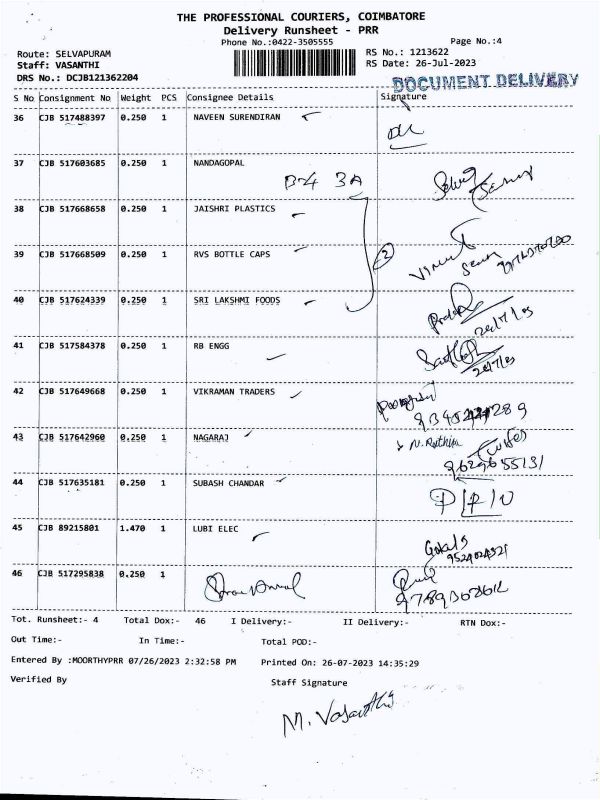 THE PROFESSIONAL COURIERS, COIMBATORE
Delivery Runsheet - PRR
Phone No.:0422-3505555
Page No.:4
Route: SELVAPURAM
RS No.: 1213622
Staff: VASANTHI
RS Date: 26-Jul-2023
DRS No.: DCJB121362204
DOCUMENT DELIVERY
S No Consignment No Weight PCS Consignee Details Signature
36 CJB 517488397 0.250 1 NAVEEN SURENDIRAN
37 CJB 517603685 0.250 1 NANDAGOPAL
B-4 3A
38 CJB 517668658 0.250 1 JAISHRI PLASTICS
39 CJB 517668509 0.250 1 RVS BOTTLE CAPS
40 CJB 517624339 0.250 1 SRI LAKSHMI FOODS
41 CJB 517584378 0.250 1 RB ENGG
42 CJB 517649668 0.250 1 VIKRAMAN TRADERS
43 CJB 517642960 0.250 1 NAGARAJ
9629655131
44 CJB 517635181 0.250 1 SUBASH CHANDAR
45 CJB 89215801 1.470 1 LUBI ELEC
46 CJB 517295838 0.250 1
Tot. Runsheet:- 4 Total Dox:- 46 I Delivery:- II Delivery:- RTN Dox:-
Out Time:- In Time:- Total POD:-
Entered By :MOORTHYPRR 07/26/2023 2:32:58 PM Printed On: 26-07-2023 14:35:29
Verified By Staff Signature
M. Vasanthi